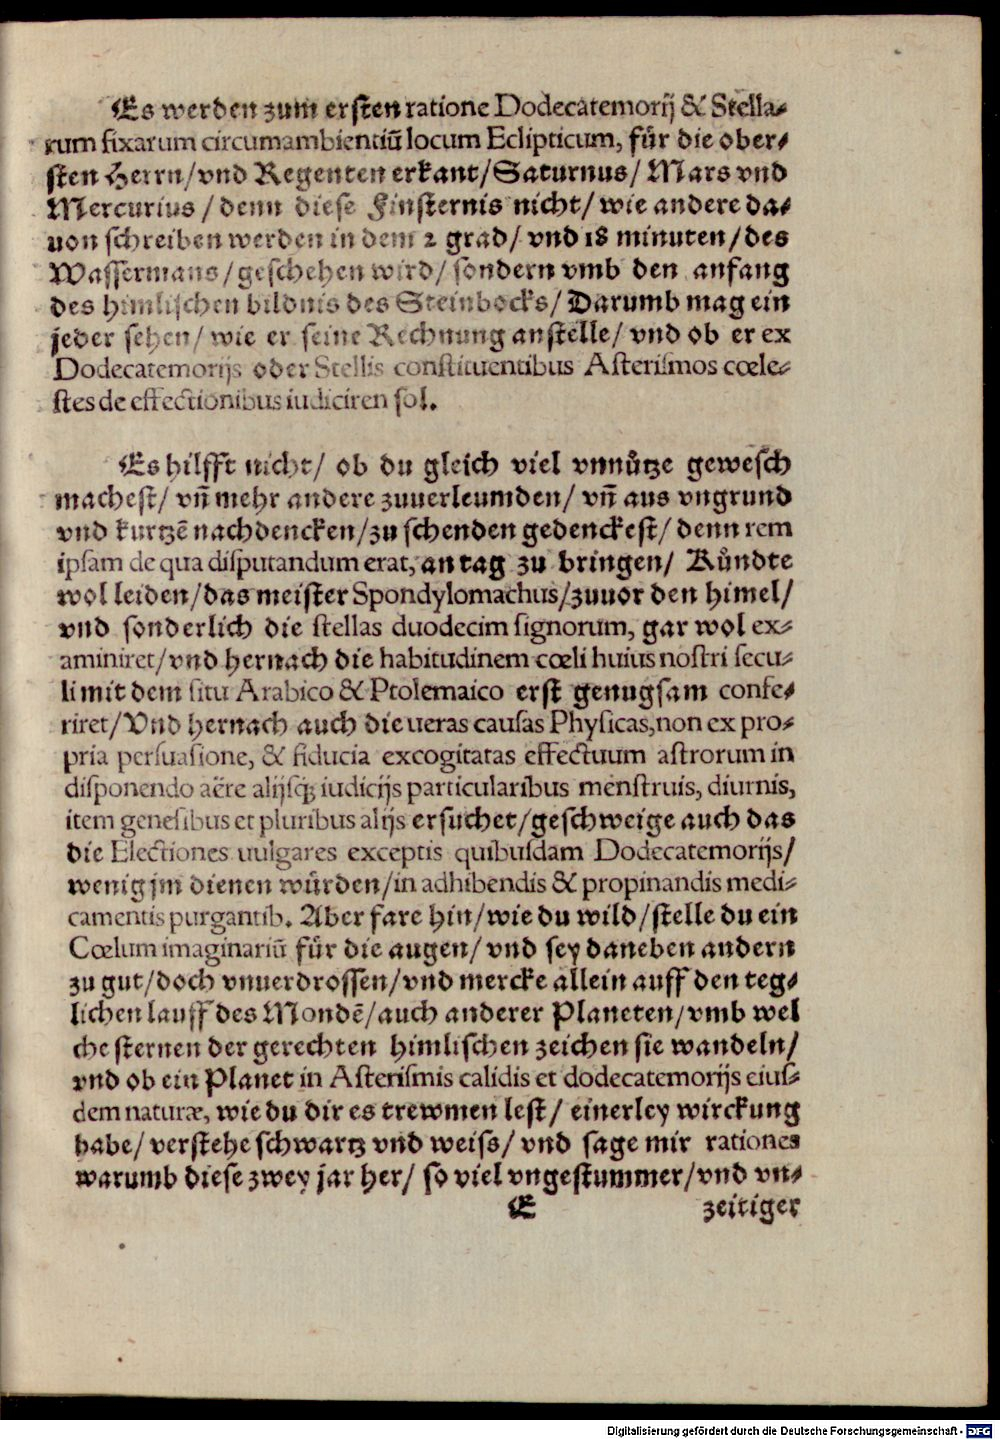 Es werden zum ersten ratione Dodecatemorij & Stella-
rum fixarum circumambientiū locum Eclipticum, für die ober-
sten Herrn/vnd Regenten erkant/Saturnus/ Mars vnd
Mercurius /denn diese Finsternis nicht/ wie andere da-
uon schreiben werden in dem 2 grad/ vnd 18 minuten/des
Wassermans/geschehen wird/ sondern vmb den anfang
des himlischen bildnis des Steinbocks/ Darumb mag ein
jeder sehen/ wie er seine Rechnung anstelle/ vnd ob er ex
Dodecatemorijs oder Stellis constituentibus Asterismos cœle-
stes de effectionibus iudiciren sol.
Es hilfft nicht/ ob du gleich viel vnnütze gewesch
machest/ vñ mehr andere zuuerleumden/ vñ aus vngrund
vnd kurtzē nachdencken/zu schenden gedenckest/ denn rem
ipsam de qua disputandum erat, an tag zu bringen/ Kůndte
wol leiden/das meister Spondylomachus/zuuor den himel/
vnd sonderlich die stellas duodecim signorum, gar wol ex-
aminiret/vnd hernach die habitudinem cœli huius nostri secu-
li mit dem situ Arabico & Ptolemaico erst genugsam confe-
riret/ Vnd hernach auch die ueras causas Physicas, non ex pro-
pria persuasione, & fiducia excogitatas effectuum astrorum in
disponendo aëre alijsq; iudicijs particularibus menstruis, diurnis,
item genesibus et pluribus alijs ersuchet/geschweige auch das
die Electiones uulgares exceptis quibusdam Dodecatemorijs/
wenig jm dienen wůrden/in adhibendis & propinandis medi-
camentis purgantib. Aber fare hin/wie du wild/stelle du ein
Cœlum imaginariū für die augen/ vnd sey daneben andern
zu gut/doch vnuerdrossen/vnd mercke allein auff den teg-
lichen lauff des Mondē/auch anderer Planeten/vmb wel
che sternen der gerechten himlischen zeichen sie wandeln/
vnd ob ein Planet in Asterismis calidis et dodecatemorijs eius-
dem naturæ, wie du dir es trewmen lest/ einerley wirckung
habe/ verstehe schwartz vnd weiss/ vnd sage mir rationes
warumb diese zwey jar her/ so viel vngestummer/vnd vn-
E zeitiger
Digitalisierung gefördert durch die Deutsche Forschungsgemeinschaft - DFG